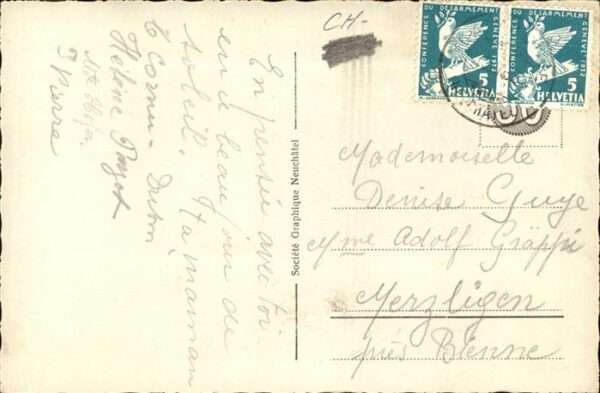 CH-
CONFÉRENCE DU DÉSARMEMENT GENÈVE 1932
5
HELVETIA
CONFÉRENCE DU DÉSARMEMENT GENÈVE 1932
5
HELVETIA
En pensée avec toi
en ce beau jour de
soleil. Ta maman
Hélène
Pierre
Société Graphique Neuchâtel
Mademoiselle
Denise Guye
Mme Adolf Gräppi
Merzligen
près Bienne